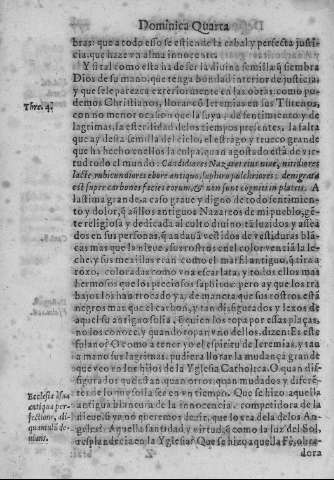 Dominica Quarta
bras: que a todo esso se estiende la cabal y perfecta justi
cia, que haze vn alma innocente.
Y si tal como esta ha de ser la diuina semilla q̃ siembra
Dios de su mano, que tenga bondad interior de justicia,
y que se le parezca exteriormente en las obras: como po-
demos Christianos, llorar cõ Ieremias en sus Threnos,
Thre. 4.
con no menor ocasion que la suya, y de sentimiento y de
lagrimas, la esterilidad de los tiempos presentes, la falta
que ay desta semilla del cielo, el estrago y trueco grande
que ha hecho en ella la culpa, quan agostado està de vir
tud todo el mundo: Candidiores Nazarei eius niue, nitidiores
lacte, rubicundiores ebore antiquo, saphiro pulchriores: denigrata
est super carbones facies eorum, & non sunt cogniti in plateis. A
lastima grande, a caso graue y digno de todo sentimien
to y dolor, q̃ aq̃llos antiguos Nazareos de mi pueblo, gẽ
te religiosa y dedicada al culto diuino tã lauados y asea
dos en sus personas, q̃ andauã vestidos de vestiduras blã
cas mas que la nieue, sus rostros en el color vencia la le-
che, y sus mexillas eran como el marfil antiguo, q̃ tira a
roxo, coloradas como vna escarlata, y todos ellos mas
hermosos que los preciosos saphiros: pero ay que los tra
bajos los han trocado ya, de manera que sus rostros està
negros mas que el carbon, y tan disfigurados y lexos de
aquel su antiguo ser, q̃ quien los topa por estas plaças,
no los conoce, y quando topan vno dellos, dizen: Es este
fulano? O como a tener yo el espiritu de Ieremias, y tan
a mano sus lagrimas, pudiera llorar la mudança grande
que veo en los hijos de la Yglesia Catholica. O quan dis
figurados que estan, quan otros, quan mudados y difere
tes de lo que solia ser en vn tiempo. Que se hizo aquella
Ecclesiæ
antiqua per-
fectione,
antigua blancura de la innocencia, competidora de la
nieue, si ya no queremos dezir, que lo era de la de los An-
geles? Aquella santidad y virtud, q̃ como la luz del Sol,
resplandecia en la Yglesia? Que se hizo aquella Fè, obra-
dora